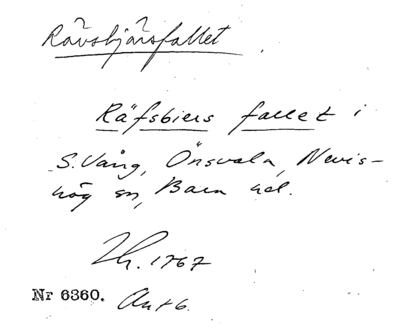 Rävsbjärsfallet
Räfsbiers fallet i
S. Vång, Önsvala, Nevis-
hög sn, Bara hd.
Th. 1767
Nr 6360. Akt 6.